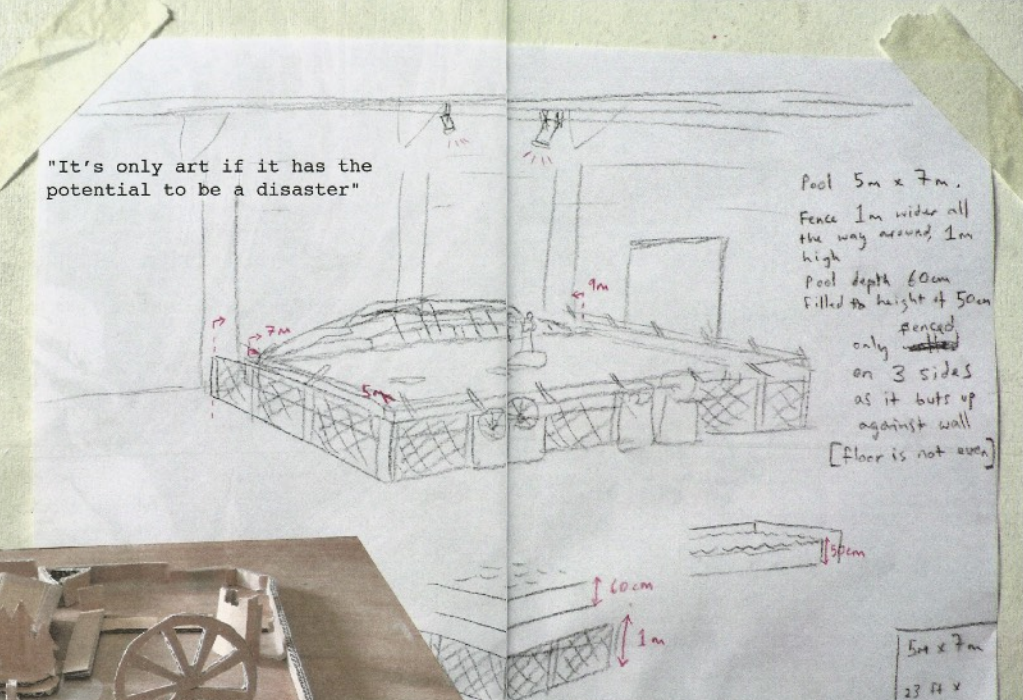 "It's only art if it has the
potential to be a disaster"
Pool 5m x 7m.
Fence 1m wider all
the way around, 1m
high
Pool depth 60cm
filled to height of 50cm
only fenced
on 3 sides
as it buts up
against wall
[floor is not even]
9m
7m
5m
50cm
60cm
1m
5m x 7m
23 ft x